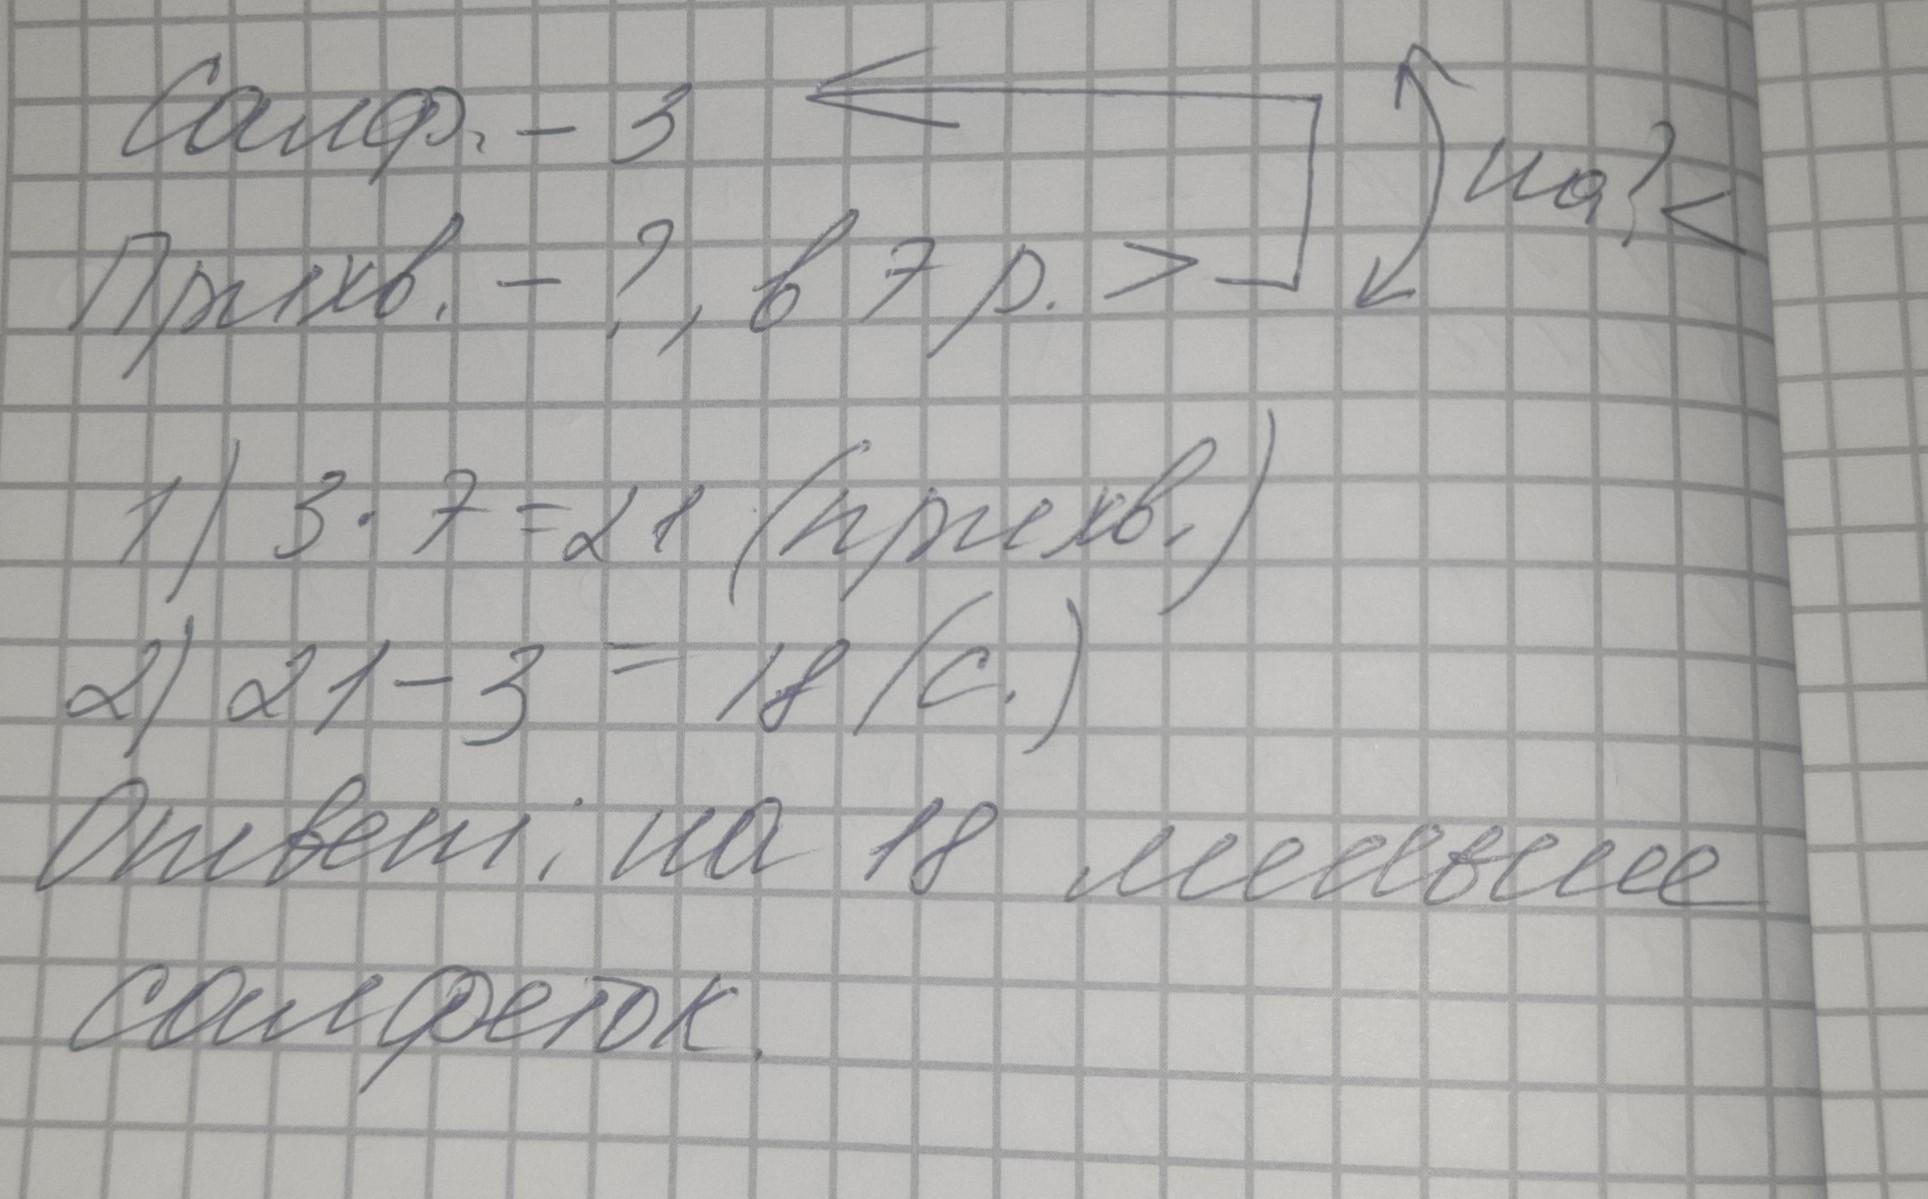 Салф. - 3
на ? <
Прихв. - ?, в 7 р. >
1) 3 · 7 = 21 (прихв.)
2) 21 - 3 = 18 (с.)
Ответ: на 18 меньше
салфеток.